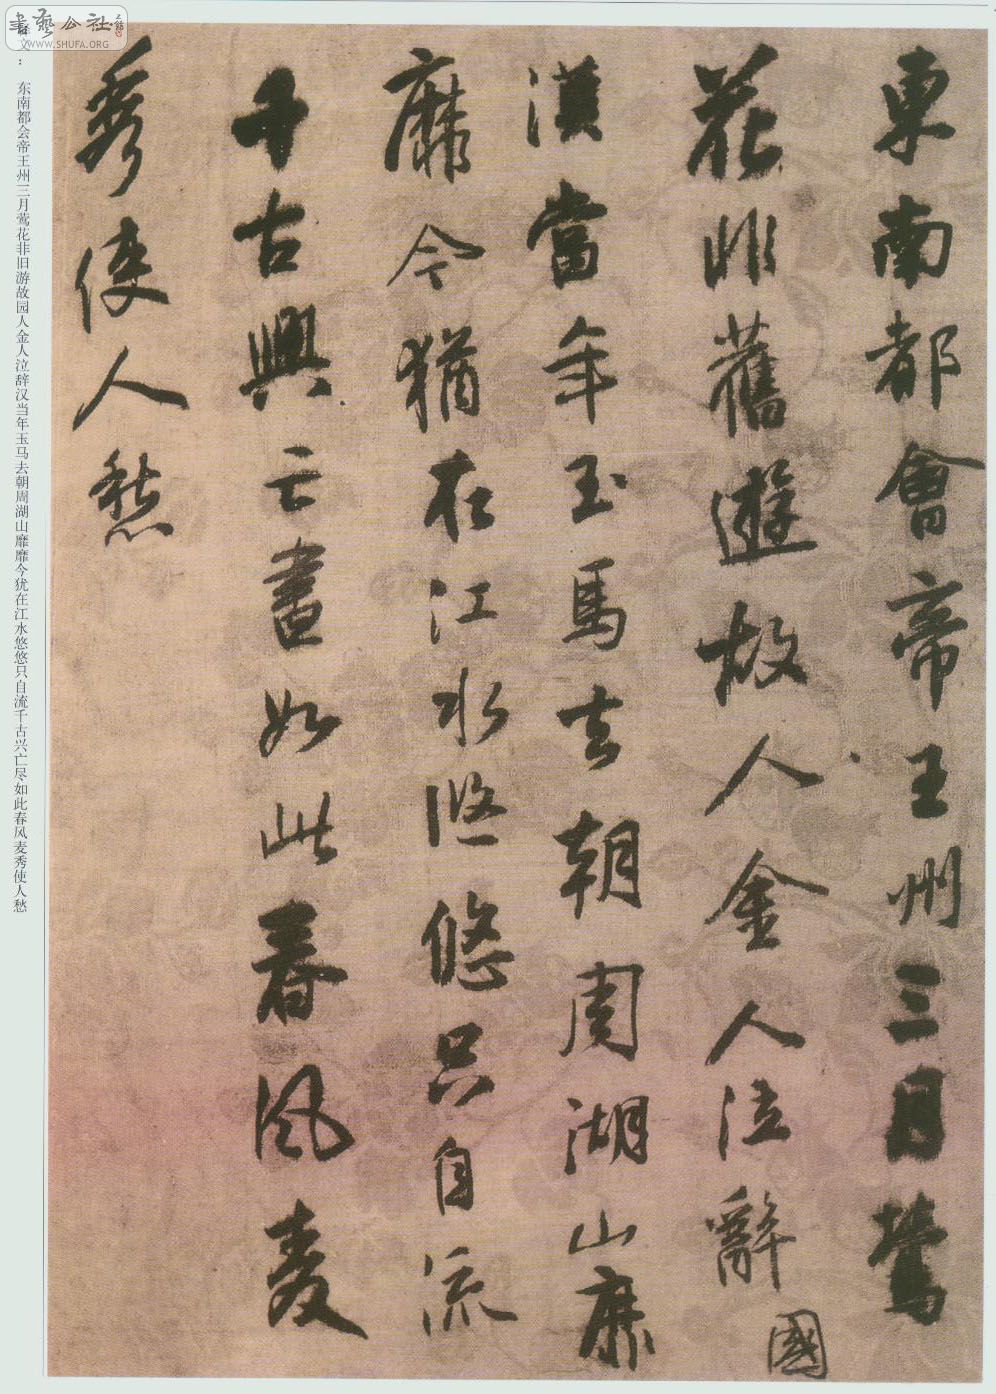 東南都會帝王州三月鶯
花非舊遊故人金人泣辭
國
漢當年玉馬去朝周湖山靡
靡今猶在江水悠悠只自流
千古興亡盡如此春風麦
秀使人愁
释文：东南都会帝王州三月莺花非旧游故园人金人泣辞汉当年玉马去朝周湖山靡靡今犹在江水悠悠只自流千古兴亡尽如此春风麦秀使人愁
書藝公社
WWW.SHUFA.ORG